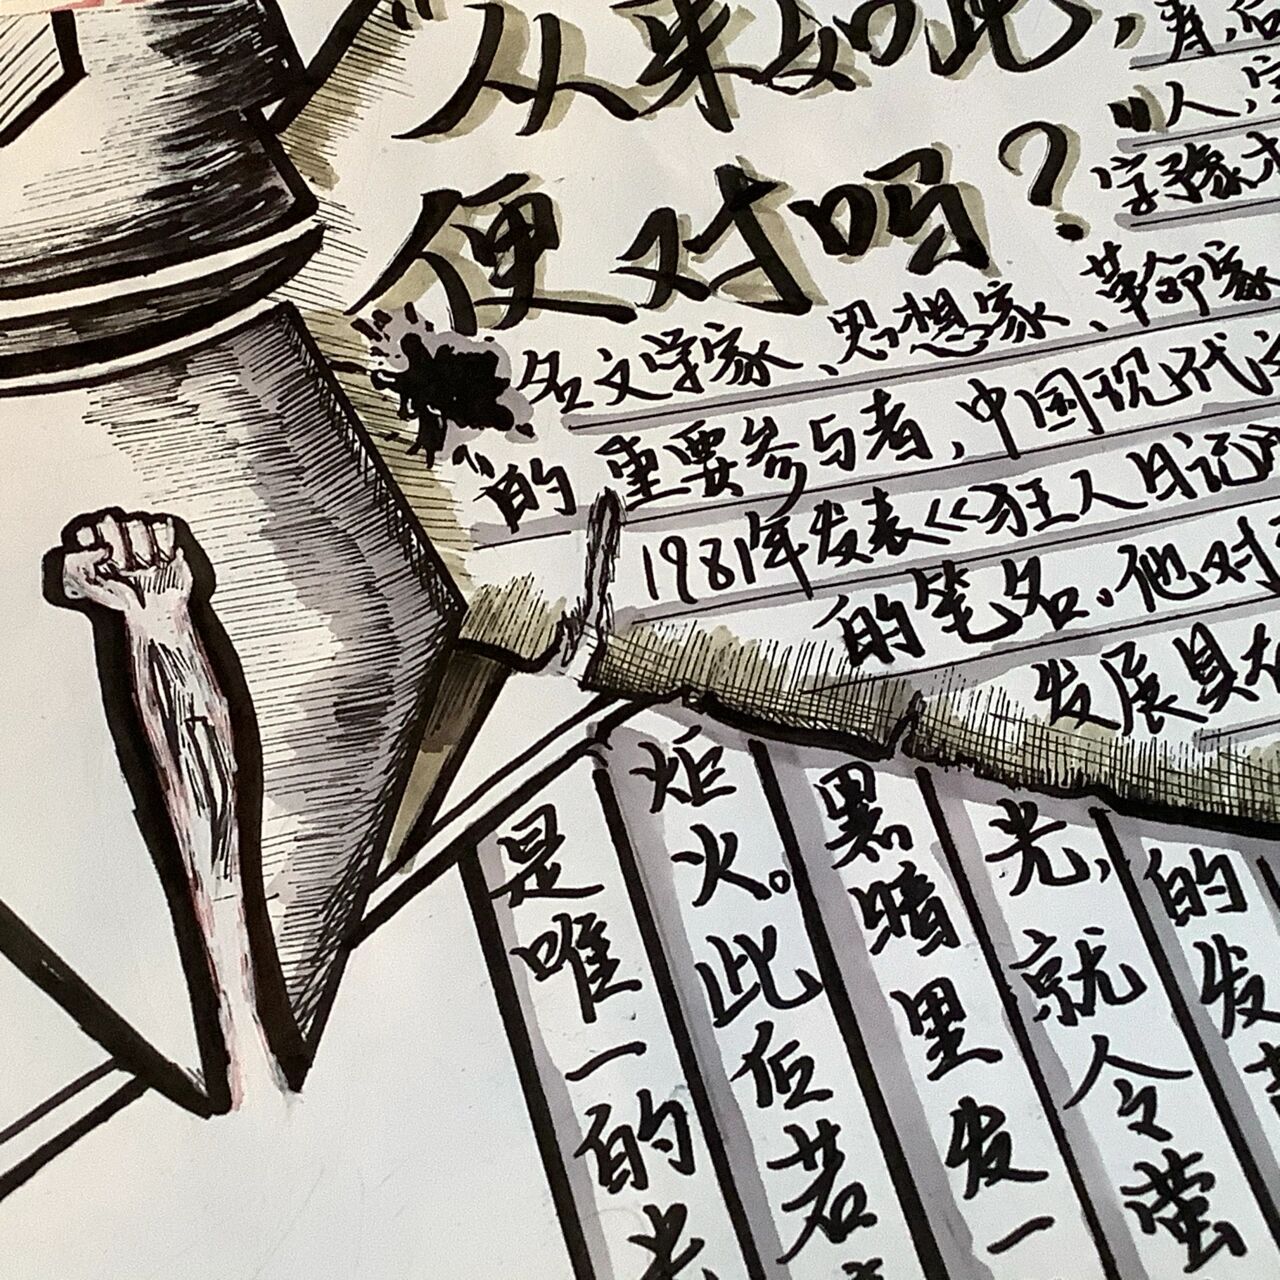 从来如此，
便对吗？
字豫才
名文学家、思想家、革命家
的重要参与者,中国现代
1981年发表《狂人日记》
的笔名,他对
发展具
的发
光,就令萤
黑暗里发一
炬火。此后若
是唯一的光